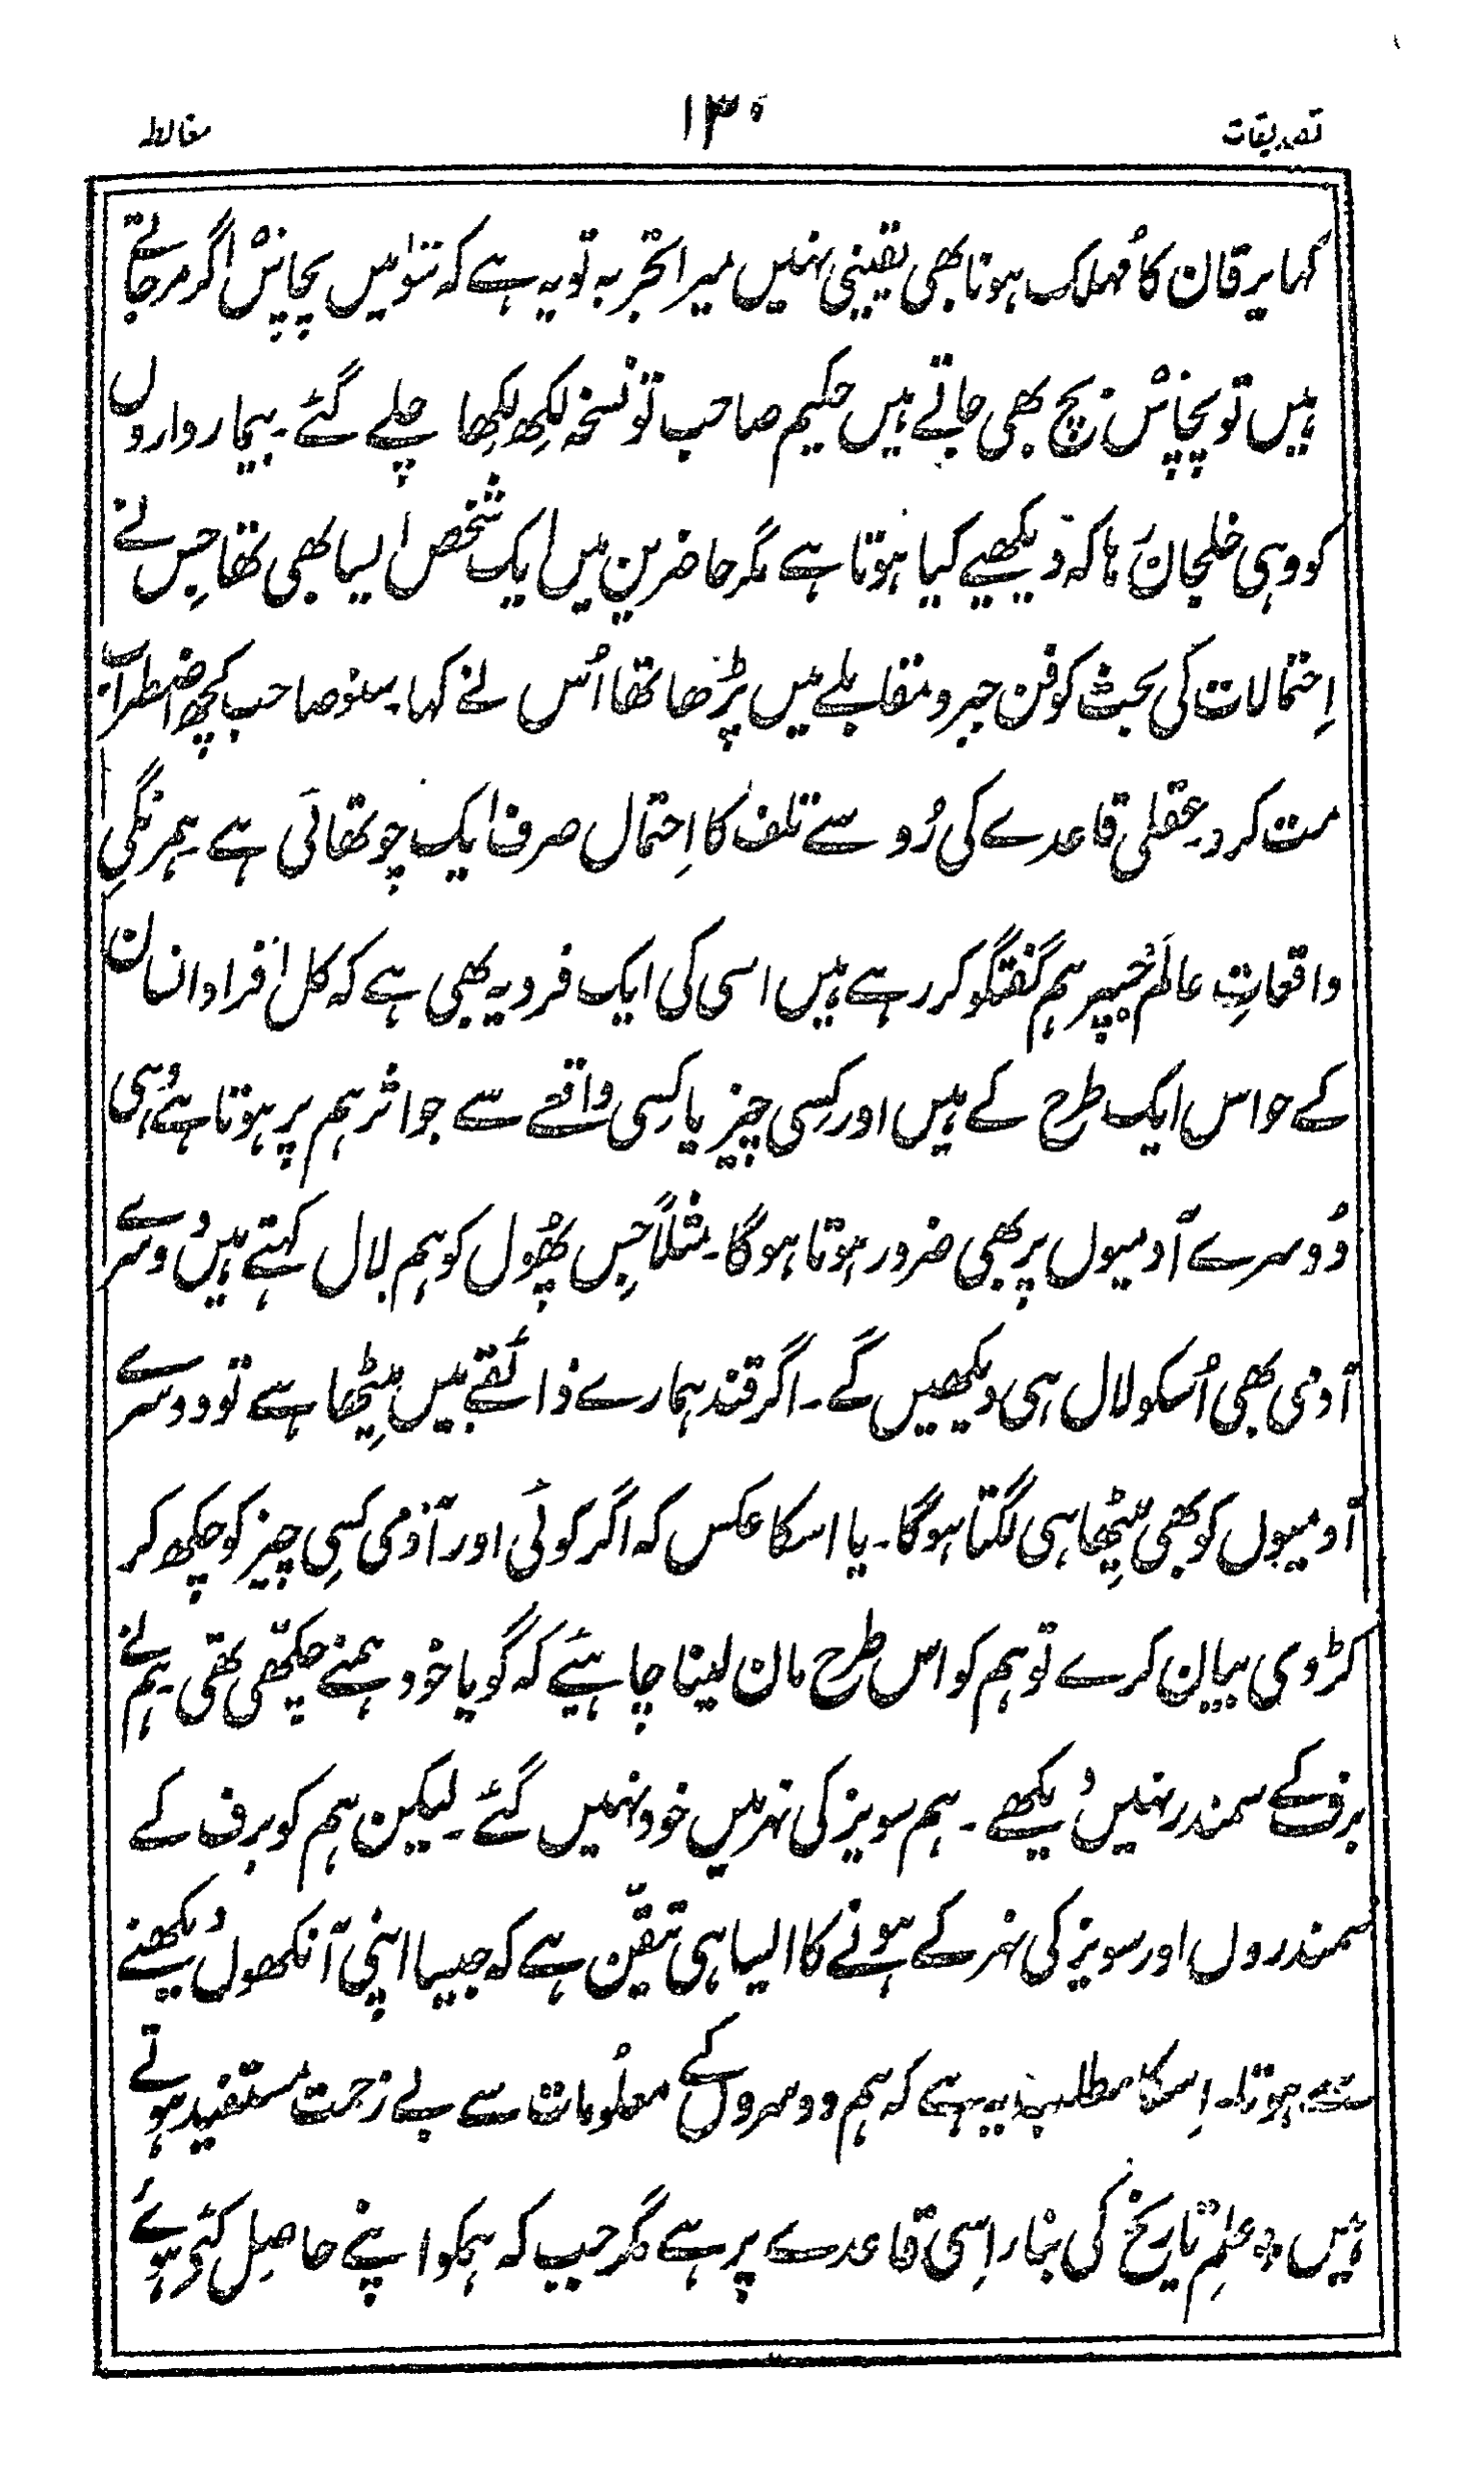 تصدیقات ۱۳۰ مغالطہ
کہا یرقان کا مُہلک ہونا بھی یقینی نہیں میرا تجربہ تو یہ ہے کہ سَو میں پچاس اگر مر جاتے
ہیں تو پچاس بچ بھی جاتے ہیں حکیم صاحب تو نسخہ لِکھ لِکھا چلے گئے۔ بیمار داروں
کو وہی خلجان رہا کہ دیکھیے کیا ہوتا ہے مگر حاضرین میں ایک شخص ایسا بھی تھا جِس نے
اِحتمالات کی بحث کو فن جبر و مقابلے میں پڑھا تھا اُس نے کہا۔ سنو صاحب کچھ اضطراب
مت کرو۔ عقلی قاعدے کی رُو سے تلف کا اِحتمال صرف ایک چوتھائی ہے۔ ہمرنگیِ
واقعاتِ عالَم جسپر ہم گفتگو کر رہے ہیں اسی کی ایک فرد یہ بھی ہے کہ کل افراد انسان
کے حواس ایک طرح کے ہیں اور کِسی چیز یا کِسی واقعے سے جو اثر ہم پر ہوتا ہے وُہی
دُوسرے آدمیوں پر بھی ضرور ہوتا ہوگا۔ مثلاً جِس پھُول کو ہم لال کہتے ہیں دُوسرے
آدمی بھی اُسکو لال ہی دیکھیں گے۔ اگر قند ہمارے ذائقے میں مِیٹھا ہے تو دوسرے
آدمیوں کو بھی مِیٹھا ہی لگتا ہوگا۔ یا اسکا عکس کہ اگر کوئی اور آدمی کسِی چیز کو چکھ کر
کڑوی بیان کرے تو ہم کو اس طرح مان لینا چاہیئے کہ گویا خود ہمنے چکھّی تھی۔ ہم نے
برف کے سمندر نہیں دیکھے۔ ہم سویز کی نہر میں خود نہیں گئے۔ لیکن ہم کو برف کے
سمندروں اور سویز کی نہر کے ہونے کا ایسا ہی تیقّن ہے کہ جیسا اپنی آنکھوں دیکھنے
سے ہوتا۔ اِسکا مطلب یہ ہے کہ ہم دوسروں کے معلُومات سے بے زحمت مستفید ہوتے
ہیں۔ علِم تاریخ کی بنا اِسی قاعدے پر ہے مگر جب کہ ہمکو اپنے حاصِل کئے ہوئے